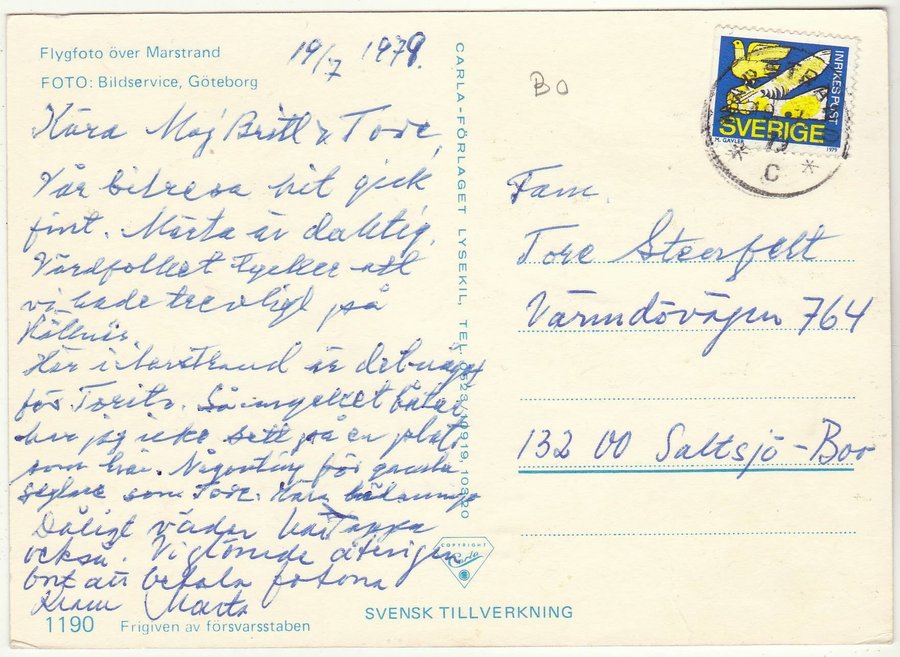 Flygfoto över Marstrand
FOTO: Bildservice, Göteborg
19/7 1979.
Kära Maj Britt & Tore,
Vår bilresa hit gick
fint. Märta är duktig.
Värdfolket tycker att
vi hade trevligt på
Här i Marstrand är det
för. Så mycket båtar
har jag icke sett på en plats
som här. Någonting för gamla
seglare som Tore.
Dåligt väder
också. Vi glömde återigen
bort att betala fotona
Kram Märta
1190 Frigiven av försvarsstaben
CARLA-FÖRLAGET LYSEKIL, TEL. 0523/10919, 10320
COPYRIGHT
Carla
SVENSK TILLVERKNING
BO
INRIKES POST
SVERIGE
M. GAVLER 1979
C
Fam.
Tore Steerfelt
Värmdövägen 764
132 00 Saltsjö-Boo